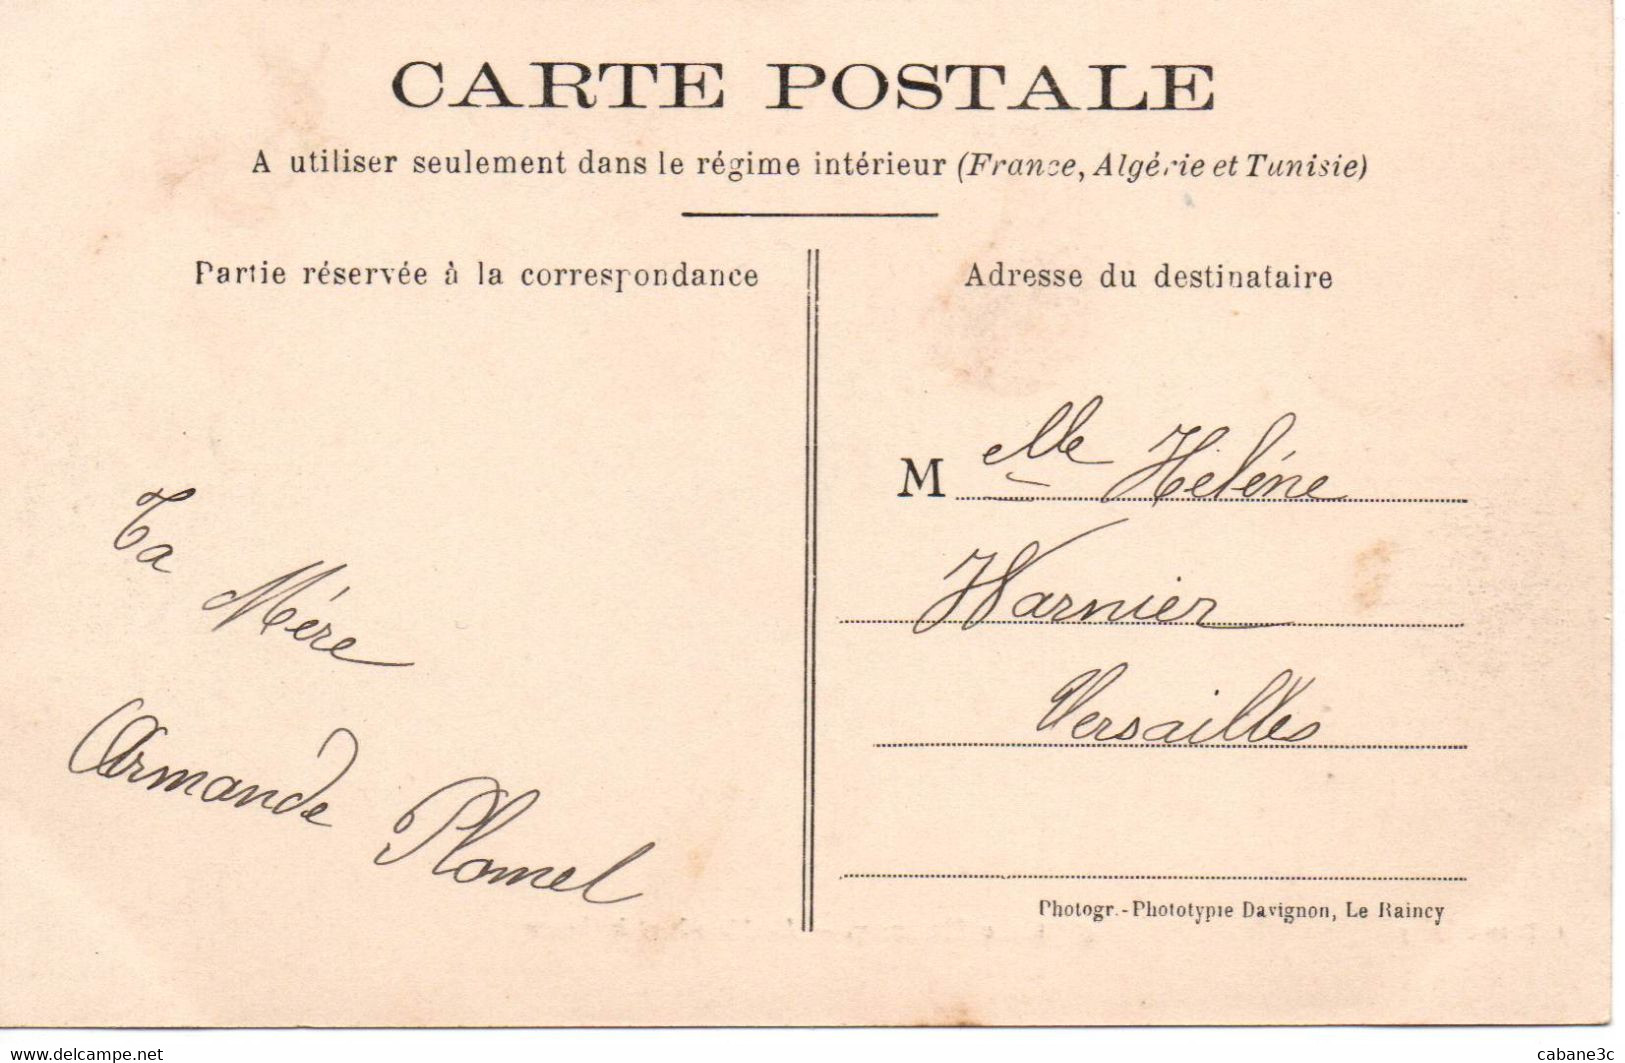 CARTE POSTALE
A utiliser seulement dans le régime intérieur (France, Algérie et Tunisie)
Partie réservée à la correspondance
Ta
Mère
Armande Plomel
Adresse du destinataire
Melle Heléne
Warnier
Versailles
Photogr.-Phototypie Davignon, Le Raincy
www.delcampe.net
cabane3c